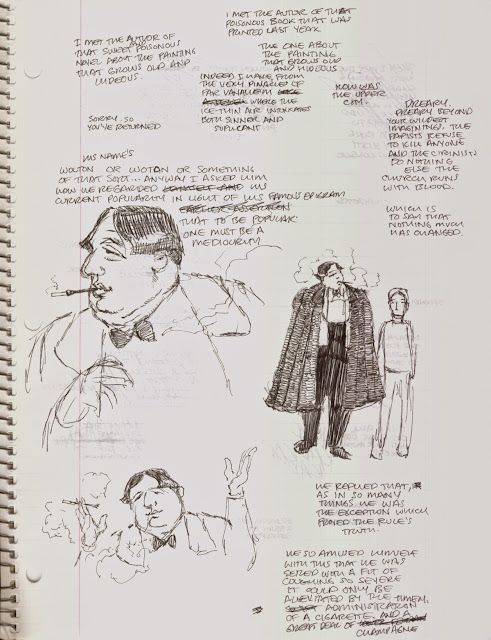 I MET THE AUTHOR OF
THAT SWEET AND POISONOUS
NOVEL ABOUT THE PAINTING
THAT GROWS OLD AND
HIDEOUS.
I MET THE AUTHOR OF THAT
POISONOUS BOOK THAT WAS
PRINTED LAST YEAR
THE ONE ABOUT
THE PAINTING
THAT GROWS OLD
AND HIDEOUS
SORRY. SO
YOU'VE RETURNED
INDEED I HAVE FROM
THE VERY PINACLE OF
FAR VANAHEIM
WHERE THE
ICE-THIN AIR INTOXICATES
BOTH SINNER AND
SUPLICANT.
HOW WAS
THE UPPER
CITY.
DREARY.
DREARY BEYOND
YOUR WILDEST
IMAGININGS. THE
PAPISTS REFUSE
TO KILL ANYONE
AND THE
DO NOTHING
ELSE THE
CHURCH RUNS
WITH BLOOD.
WHICH IS
TO SAY THAT
NOTHING MUCH
HAS CHANGED.
HIS NAME'S
WOLTON OR WOTAN OR SOMETHING
OF THAT SORT... ANYWAY I ASKED HIM
HOW HE REGARDED HIS
CURRENT POPULARITY IN LIGHT OF HIS FAMOUS EPIGRAM
EARLIER ASSERTION
THAT TO BE POPULAR
ONE MUST BE A
MEDIOCRITY
HE REPLIED THAT,
AS IN SO MANY
THINGS HE WAS
THE EXCEPTION WHICH
PROVED THE RULE'S
TRUTH.
HE SO AMUSED HIMSELF
WITH THIS THAT HE WAS
SEIZED WITH A FIT OF
COUGHING SO SEVERE
IT COULD ONLY BE
ALLEVIATED BY THE TIMELY
ADMINISTRATION
OF A CIGARETTE AND A
GREAT DEAL OF
CHAMPAGNE